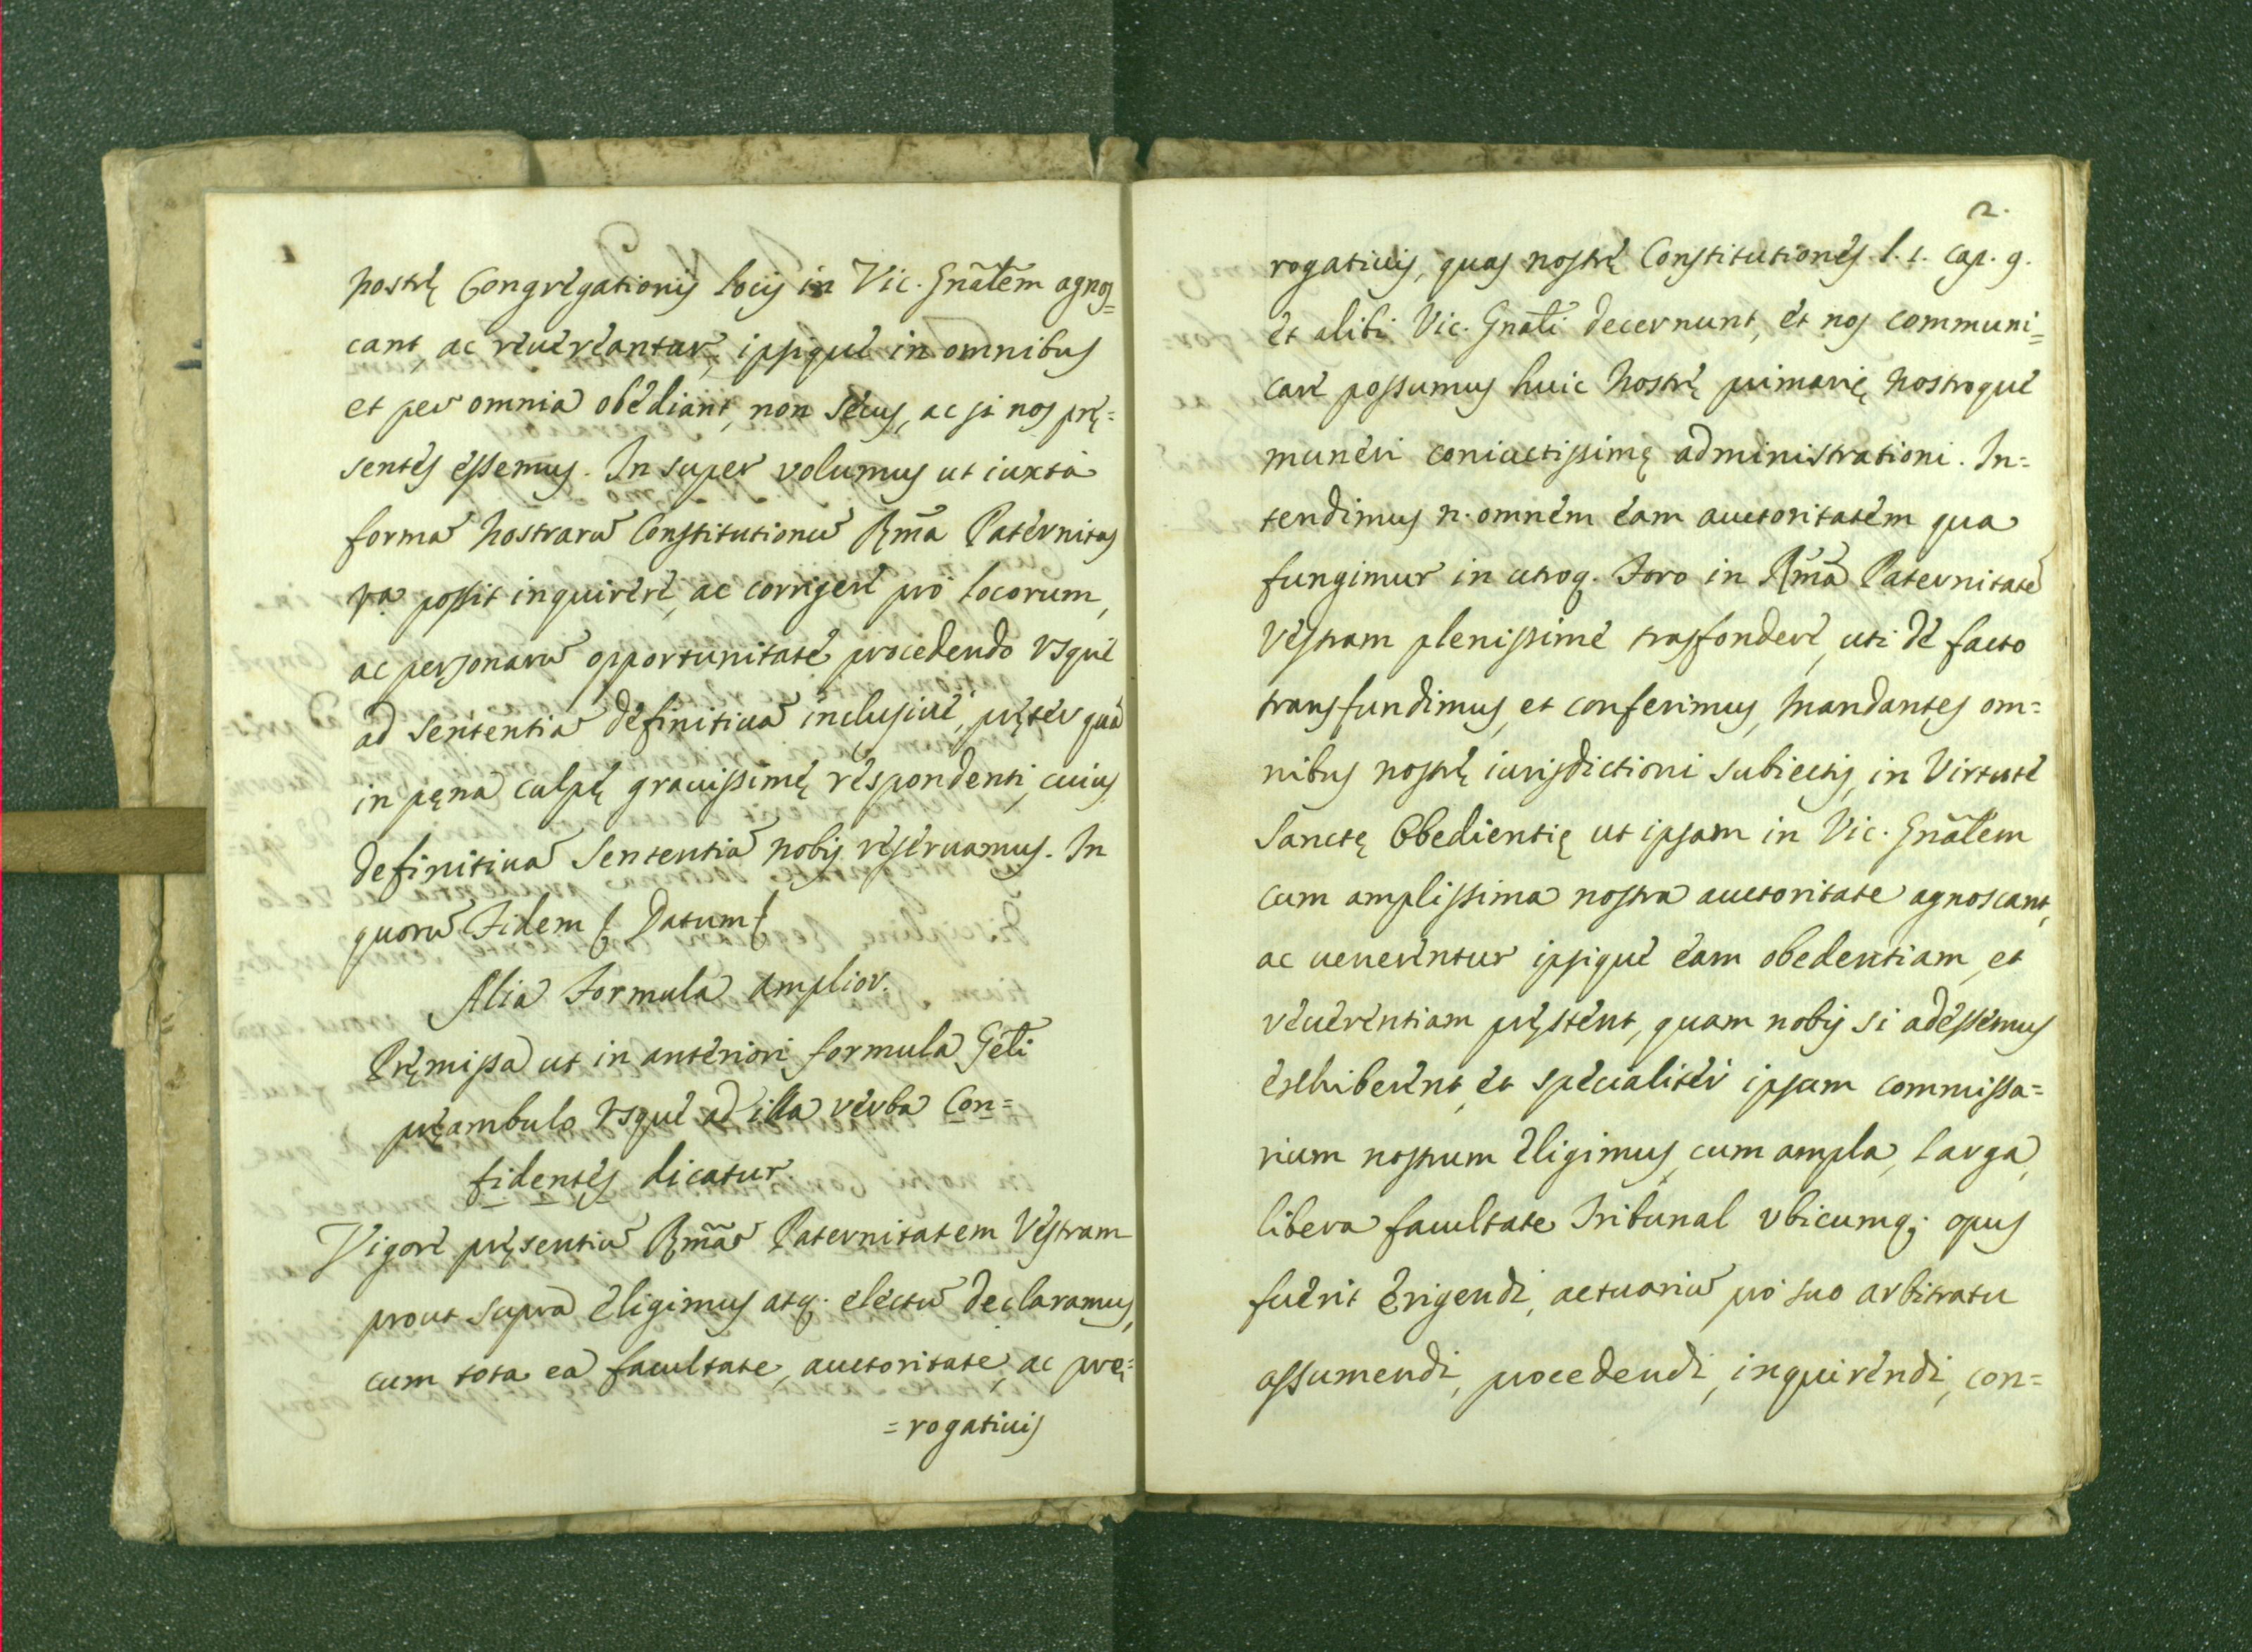 nostrę Congregationis locis in Vic. Gnãlem agnos=
cant ac reuereantur, ipsique in omnibus
et per omnia obediant, non secus, ac si nos prę=
sentes essemus. In super volumus ut iuxta
formã nostrarũ Constitutionũ Rm̃a Paternitas
vr̃a possit inquirere, ac corrigere pro locorum,
ac personarũ opportunitate, procedendo vsque
ad sententiã definitiuã inclusiuè, pręter quã
in pęna culpę grauissimę respondenti, cuius
definitiuã sententiã nobis reseruamus. In
quorũ Fidem & Datum &
Alia Formula amplior.
Pręmissa ut in anteriori formula Geñli
pręambulo vsque ad illa verba Con=
fidentes dicatur.
Vigore pręsentiũ Rm̃ã Paternitatem Vestram
prout supra eligimus atq; electũ declaramus,
cum tota ea facultate, auctoritate, ac prę=
=rogatiuis
2.
rogatiuis, quas nostrę Constitutiones l. 1. cap. 9.
et alibi Vic. Gnãli decernunt, et nos communi=
care possumus huic nostrę primarię nostroque
muneri coniuctissimę administrationi. In=
tendimus n. omnem eam auctoritatem qua
fungimur in utroq. Foro in Rm̃ã Paternitatẽ
Vestram plenissime trasfondere, uti de facto
transfundimus, et conferimus, mandantes om=
nibus nostrę iurisdictioni subiectis, in Virtute
Sanctę Obedientię ut ipsam in Vic. Gnãlem
cum amplissima nostra auctoritate agnoscant,
ac uenerentur ipsique eam obedentiam, et
reuerentiam pręstent, quam nobis si adessemus
exhiberent, et specialiter ipsam commissa=
rium nostrum eligimus, cum ampla, larga,
libera facultate Tribunal vbicumq; opus
fuerit erigendi, actuariũ pro suo arbitratu
assumendi, procedendi, inquirendi, con=